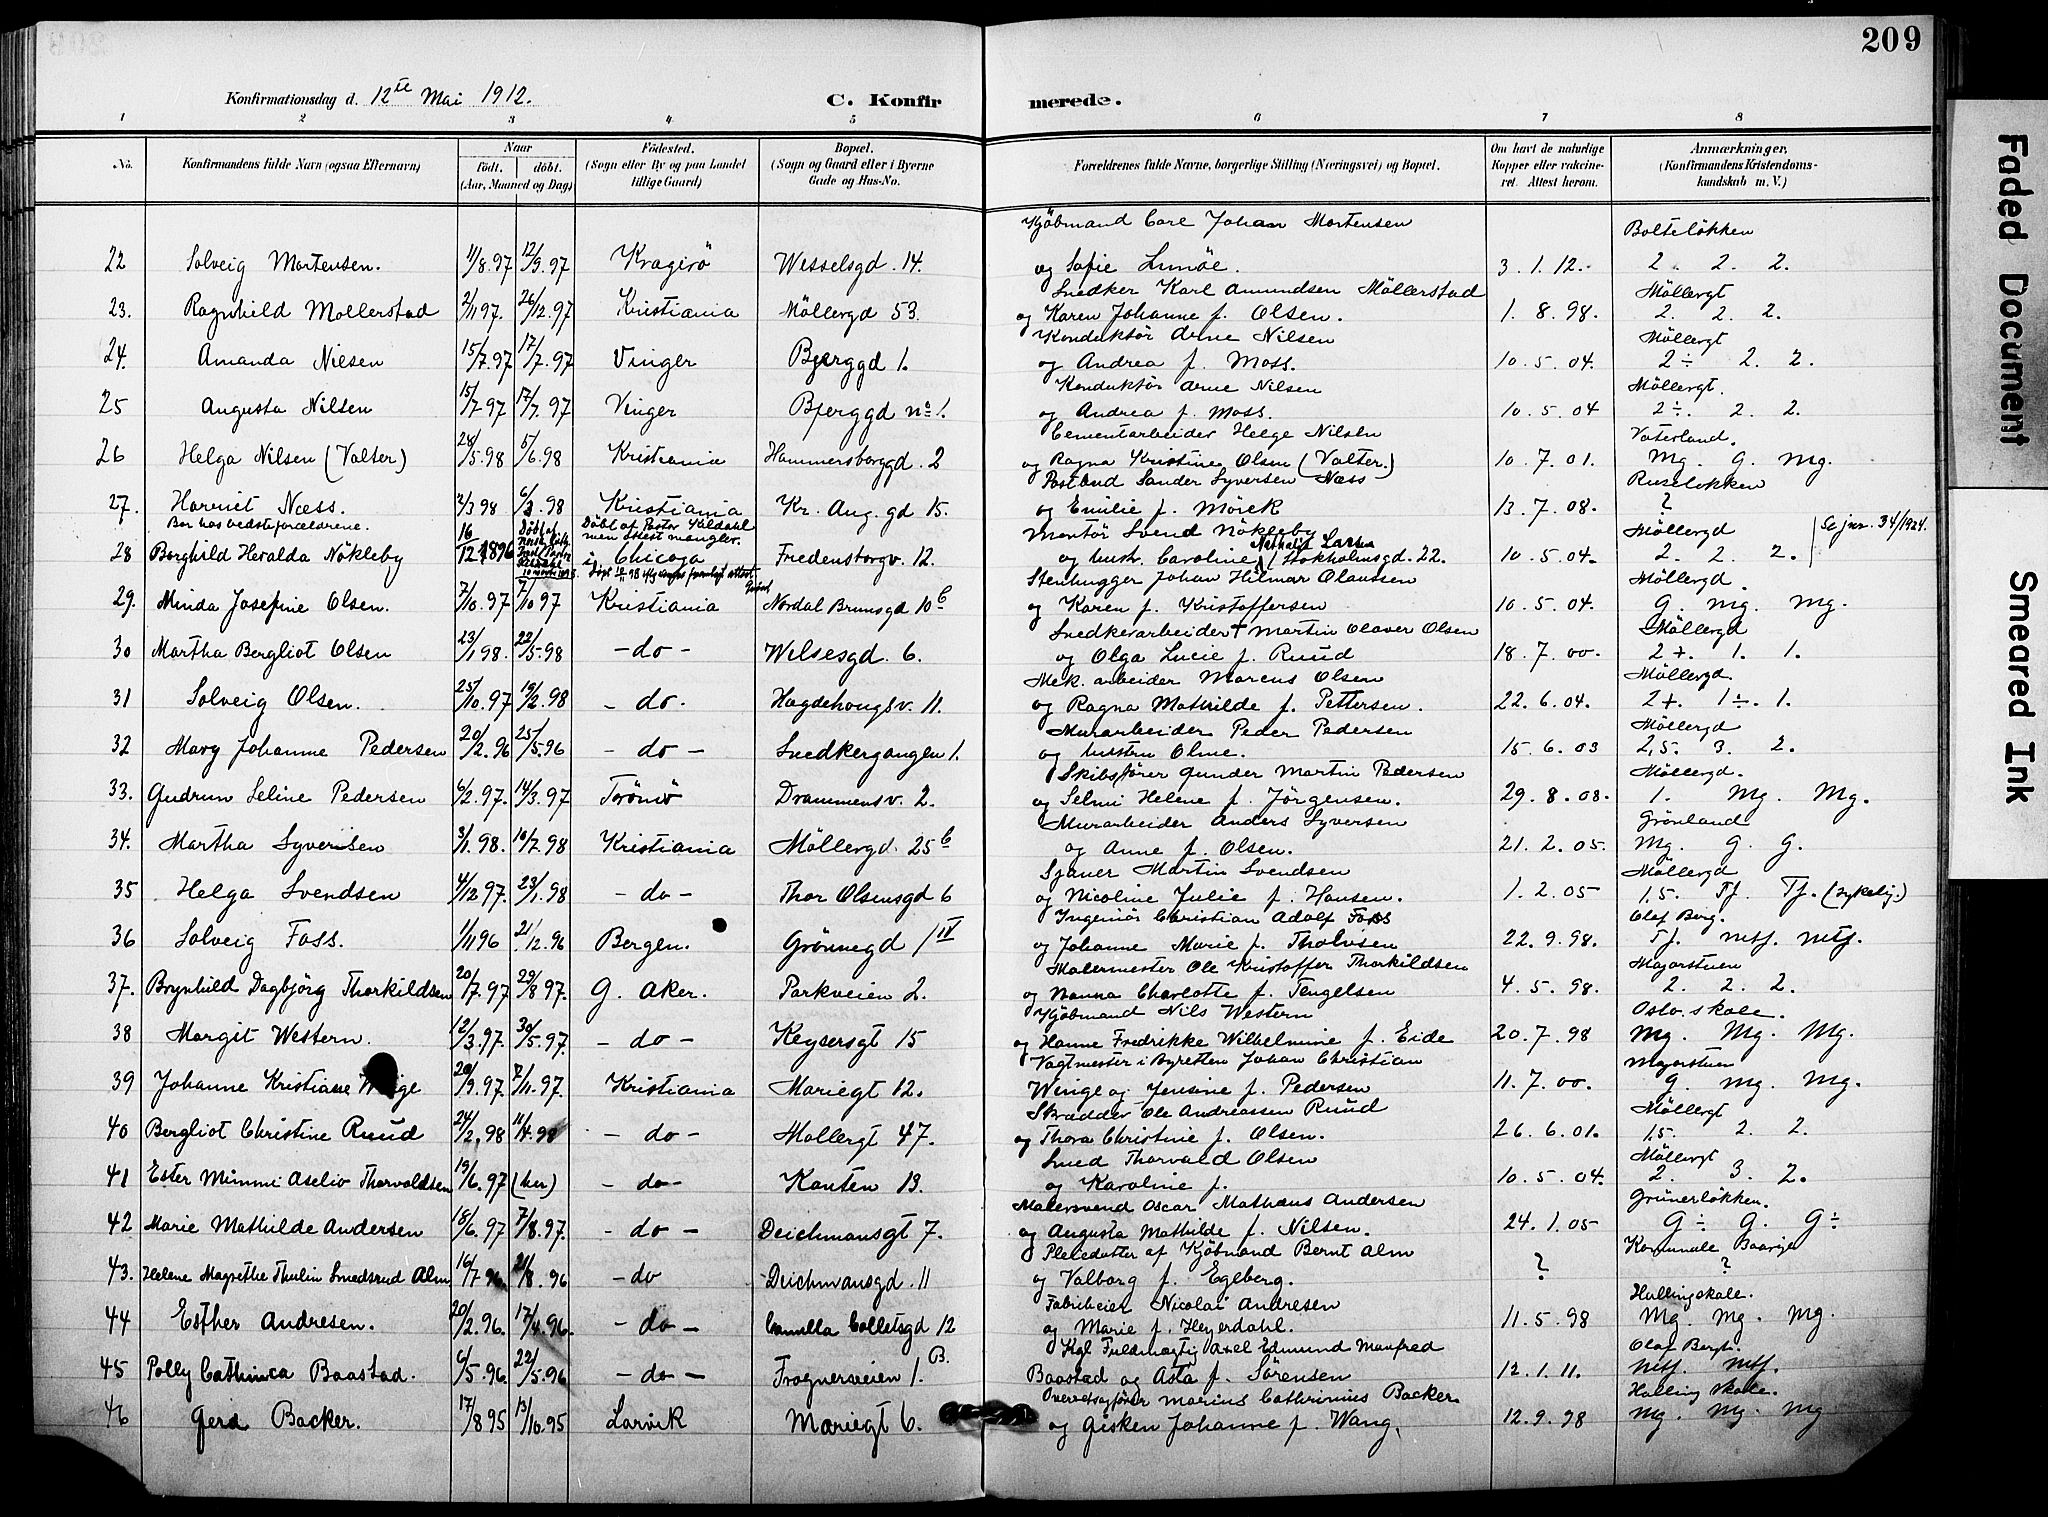 209
Konfirmationsdag d. 12te Mai 1912.
C. Konfirmerede.
1 2 3 4 5 6 7 8
No. Konfirmandens fulde Navn (ogsaa Efternavn) Naar født. døbt. (Aar, Maaned og Dag) Fødested. (Sogn eller By og paa Landet tillige Gaard) Bopæl. (Sogn og Gaard eller i Byerne Gade og Hus-No.) Forældrenes fulde Navne, borgerlige Stilling (Næringsvei) og Bopæl. Om havt de naturlige Kopper eller vakcineret. Attest herom. Anmærkninger, (Konfirmandens Kristendomskundskab m. V.)
Kjöbmand Carl Johan Mortensen Bolteløkken
22 Solveig Mortensen. 11/8.97 12/9.97 Kragerö Wesselsgd. 14. og Sofie Lunöe. 3.1.12. 2. 2. 2.
Snedker Karl Amundsen Möllerstad Möllergt
23. Ragnhild Mollerstad 2/11 97. 26/12.97 Kristiania Möllergd 53. og Karen Johanne f. Olsen. 1.8.98. 2. 2. 2.
Konduktör Arne Nilsen Möllergt
24. Amanda Nilsen 15/7.97 17/7.97 Vinger Bjerggd 1. og Andrea f. Moss. 10.5.04. 2÷ 2. 2.
Konduktör Arne Nilsen Möllergt.
25 Augusta Nilsen 15/7 97 17/7.97 Vinger Bjerggd no 1. og Andrea f. Moss. 10.5.04 2÷. 2. 2.
Cementarbeider Helge Nilsen Vaterland.
26 Helga Nilsen (Valter) 28/5.98 5/6.98 Kristiania Hammersborggd. 2 og Ragna Kristine Olsen (Valter.) 10.7.01. Mg. G. Mg.
Postbud Sander Syversen Næss Ruseløkken
27. Harriet Næss. 2/3 98 6/3.98 Kristiania Kr. Aug. gd 15. og Emilie f. Mörek 13.7.08. ?
Bor hos bedsteforældrene. Döbt af Pastor Kildahl men attest mangler. Montör Svend Nökleby Möllergd Se jnr. 34/1924.
28 Borghild Heralda Nökleby 16/12 1896 i Chicago Fredensborgv. 12. og hustr. Caroline Nathalie Larsen (Stokholmsgd. 22. 10.5.04. 2. 2. 2.
Stenhugger Johan Hilmar Olaussen Möllergd.
29. Minda Josefine Olsen. 7/10.97 7/10 97 Kristiania Nordal Brunsgd 10 b og Karen f. Kristoffersen 10.5.04. G. Mg. Mg.
Snedkerarbeider † Martin Olaver Olsen Möllergd
30 Martha Bergliot Olsen 23/1 98. 22/5.98 -do- Wilsesgd. 6. og Olga Lucie f. Ruud 18.7.00. 2+. 1. 1.
Mek. arbeider Marcus Olsen Möllergd.
31 Solveig Olsen. 25/10.97 19/2.98 - do. Hagdehougsv. 11. og Ragna Mathilde f. Pettersen. 22.6.04. 2+. 1÷. 1.
Murarbeider Peder Pedersen Möllergd
32 Mary Johanne Pedersen 20/2.96 25/5.96 - do - Snedkergangen 1. og hustru Oline. 15.6.03 2,5. 3. 2.
Skibsfører Gunder Martin Pedersen Möllergd.
33. Gudrun Seline Pedersen 6/2.97. 14/3.97 Tromö Drammensv. 2. og Selmi Helene f. Jörgensen. 29.8.08. 1. Mg. Mg.
Murarbeider Anders Syversen Grönland
34. Martha Syversen 3/1.98. 10/7.98 Kristiania Möllergd. 25 b og Anne f. Olsen. 21.2.05. Mg. G. G.
Sjauer Martin Svendsen Möllergd
35 Helga Svendsen 4/12 97. 23/1.98 - do - Thor Olsensgd 6 og Nicoline Julie f. Hansen. 1.2.05 1,5. Tf. Tf. (sykelig.)
Ingeniör Christian Adolf Foss Olaf Berg.
36 Solveig Foss. 1/11 96 21/12.96 Bergen. Grönnegd 1 IV og Johanne Marie f. Tholvsen 22.9.98. Tf. Mtf. Mtf.
Malermester Ole Kristoffer Thorkildsen Majorstuen
37. Brynhild Dagbjörg Thorkildsen 20/7.97 29/8 97. G. Aker. Parkveien 2. og Nanna Charlotte f. Tengelsen 4.5.98. 2. 2. 2.
Kjöbmand Nils Western Oslo skole.
38 Margit Western. 12/3.97. 30/5.97. - do - Keysersgt 15 og Hanne Fredrikke Wilhelmine f. Eide 20.7.98 Mg. Mg. Mg.
Vagtmester i Byretten Johan Christian Majorstuen
39 Johanne Kristiane Winge 20/9.97. 7/11.97. Kristiania Mariegt 12. Winge og Jensine f. Pedersen 11.7.00. G. Mg. Mg.
Skrædder Ole Andreassen Ruud Möllergt
40 Bergliot Christine Ruud 24/2.98 11/4.98 - do - Mollergt 47. og Thora Christine f. Olsen. 26.6.01. 1,5. 2. 2.
Smed Thorvald Olsen Möllergt
41 Ester Mimmi Aseliv Thorvaldsen 19/6.97 (her) - do - Kanten 13. og Karoline f. 10.5.04. 2. 3. 2.
Malersvend Oscar Mathæus Andersen Grünerløkken.
42 Marie Mathilde Andersen 18/6.97 7/8.97. - do - Deichmansgt 7. og Augusta Mathilde f. Nilsen. 24.1.05 G÷ G. G÷
Pleiedatter af Kjöbmand Bernt Alm Komunale
43. Helene Magrethe Thulin Smedsrud Alm 16/7 96 21/8.96 - do Deichmansgd. 11 og Valborg f. Egeberg. ? ?
Fabrikeier Nicolai Andresen Hallingskole.
44 Esther Andresen. 20/2.96. 17/4.96. - do - Camilla Colletsgd 12 og Marie f. Heyerdahl. 11.5.98 Mg. Mg. Mg.
Kgl Fuldmægtig Axel Edmund Manfred Olaf Bergs.
45 Polly Cathinca Baastad. 6/5.96. 22/5.96 - do - Frognerveien 1. B. Baastad og Asta f. Sörensen 12.1.11. Mtf. Mtf.
Overretssagförer Marius Cathrinus Backer Halling skole.
46 Gerd Backer. 17/8 95 13/10.95 Larvik Mariegt 6. og Gisken Johanne f. Wang. 12.9.98 Mg. Mg. Mg
Faded Document
Smeared Ink